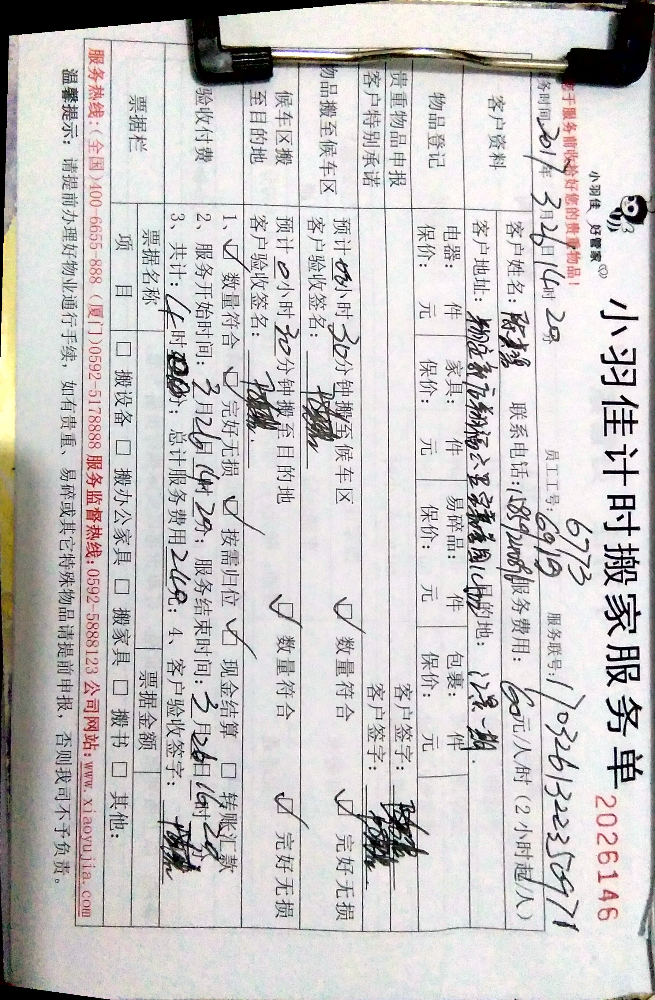 小羽佳 好管家
小羽佳计时搬家服务单
2026146
6773
服务时间: 2017年3月26日14时20分 员工工号: 6919 服务联号: 170326132235097
客户资料
客户姓名: 联系电话: 服务费用: 60元/人/时(2小时起/人)
客户地址: 目的地:
物品登记
电器: 件 家具: 件 易碎品: 件 包裹: 件
保价: 元 保价: 元 保价: 元 保价: 元
贵重物品申报 客户签字:
客户特别承诺 客户签字:
物品搬至候车区
预计 小时30分钟搬至候车区 ☑ 数量符合 ☑ 完好无损
客户验收签名:
候车区搬至目的地
预计0小时30分钟搬至目的地 ☑ 数量符合 ☑ 完好无损
客户验收签名:
验收付费
1、☑ 数量符合 ☑ 完好无损 ☑ 按需归位 ☑ 现金结算 □ 转账汇款
2、服务开始时间: 3月26日14时20分; 服务结束时间: 3月26日16时20分
3、共计: 4时 分; 总计服务费用240元; 4、客户验收签字:
票据栏
票据名称 票据金额
项目 □ 搬设备 □ 搬办公家具 □ 搬家具 □ 搬书 □ 其他:
服务热线:(全国)400-6655-888 (厦门)0592-5178888 服务监督热线:0592-5888123 公司网站:www.xiaoyujia.com
温馨提示: 请提前办理好物业通行手续, 如有贵重、易碎或其它特殊物品请提前申报, 否则我司不予负责。